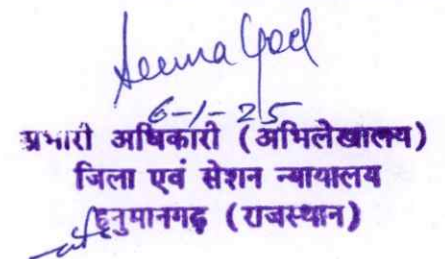 Seema Goel
6-1-25
प्रभारी अधिकारी (अभिलेखालय)
जिला एवं सेशन न्यायालय
हनुमानगढ़ (राजस्थान)